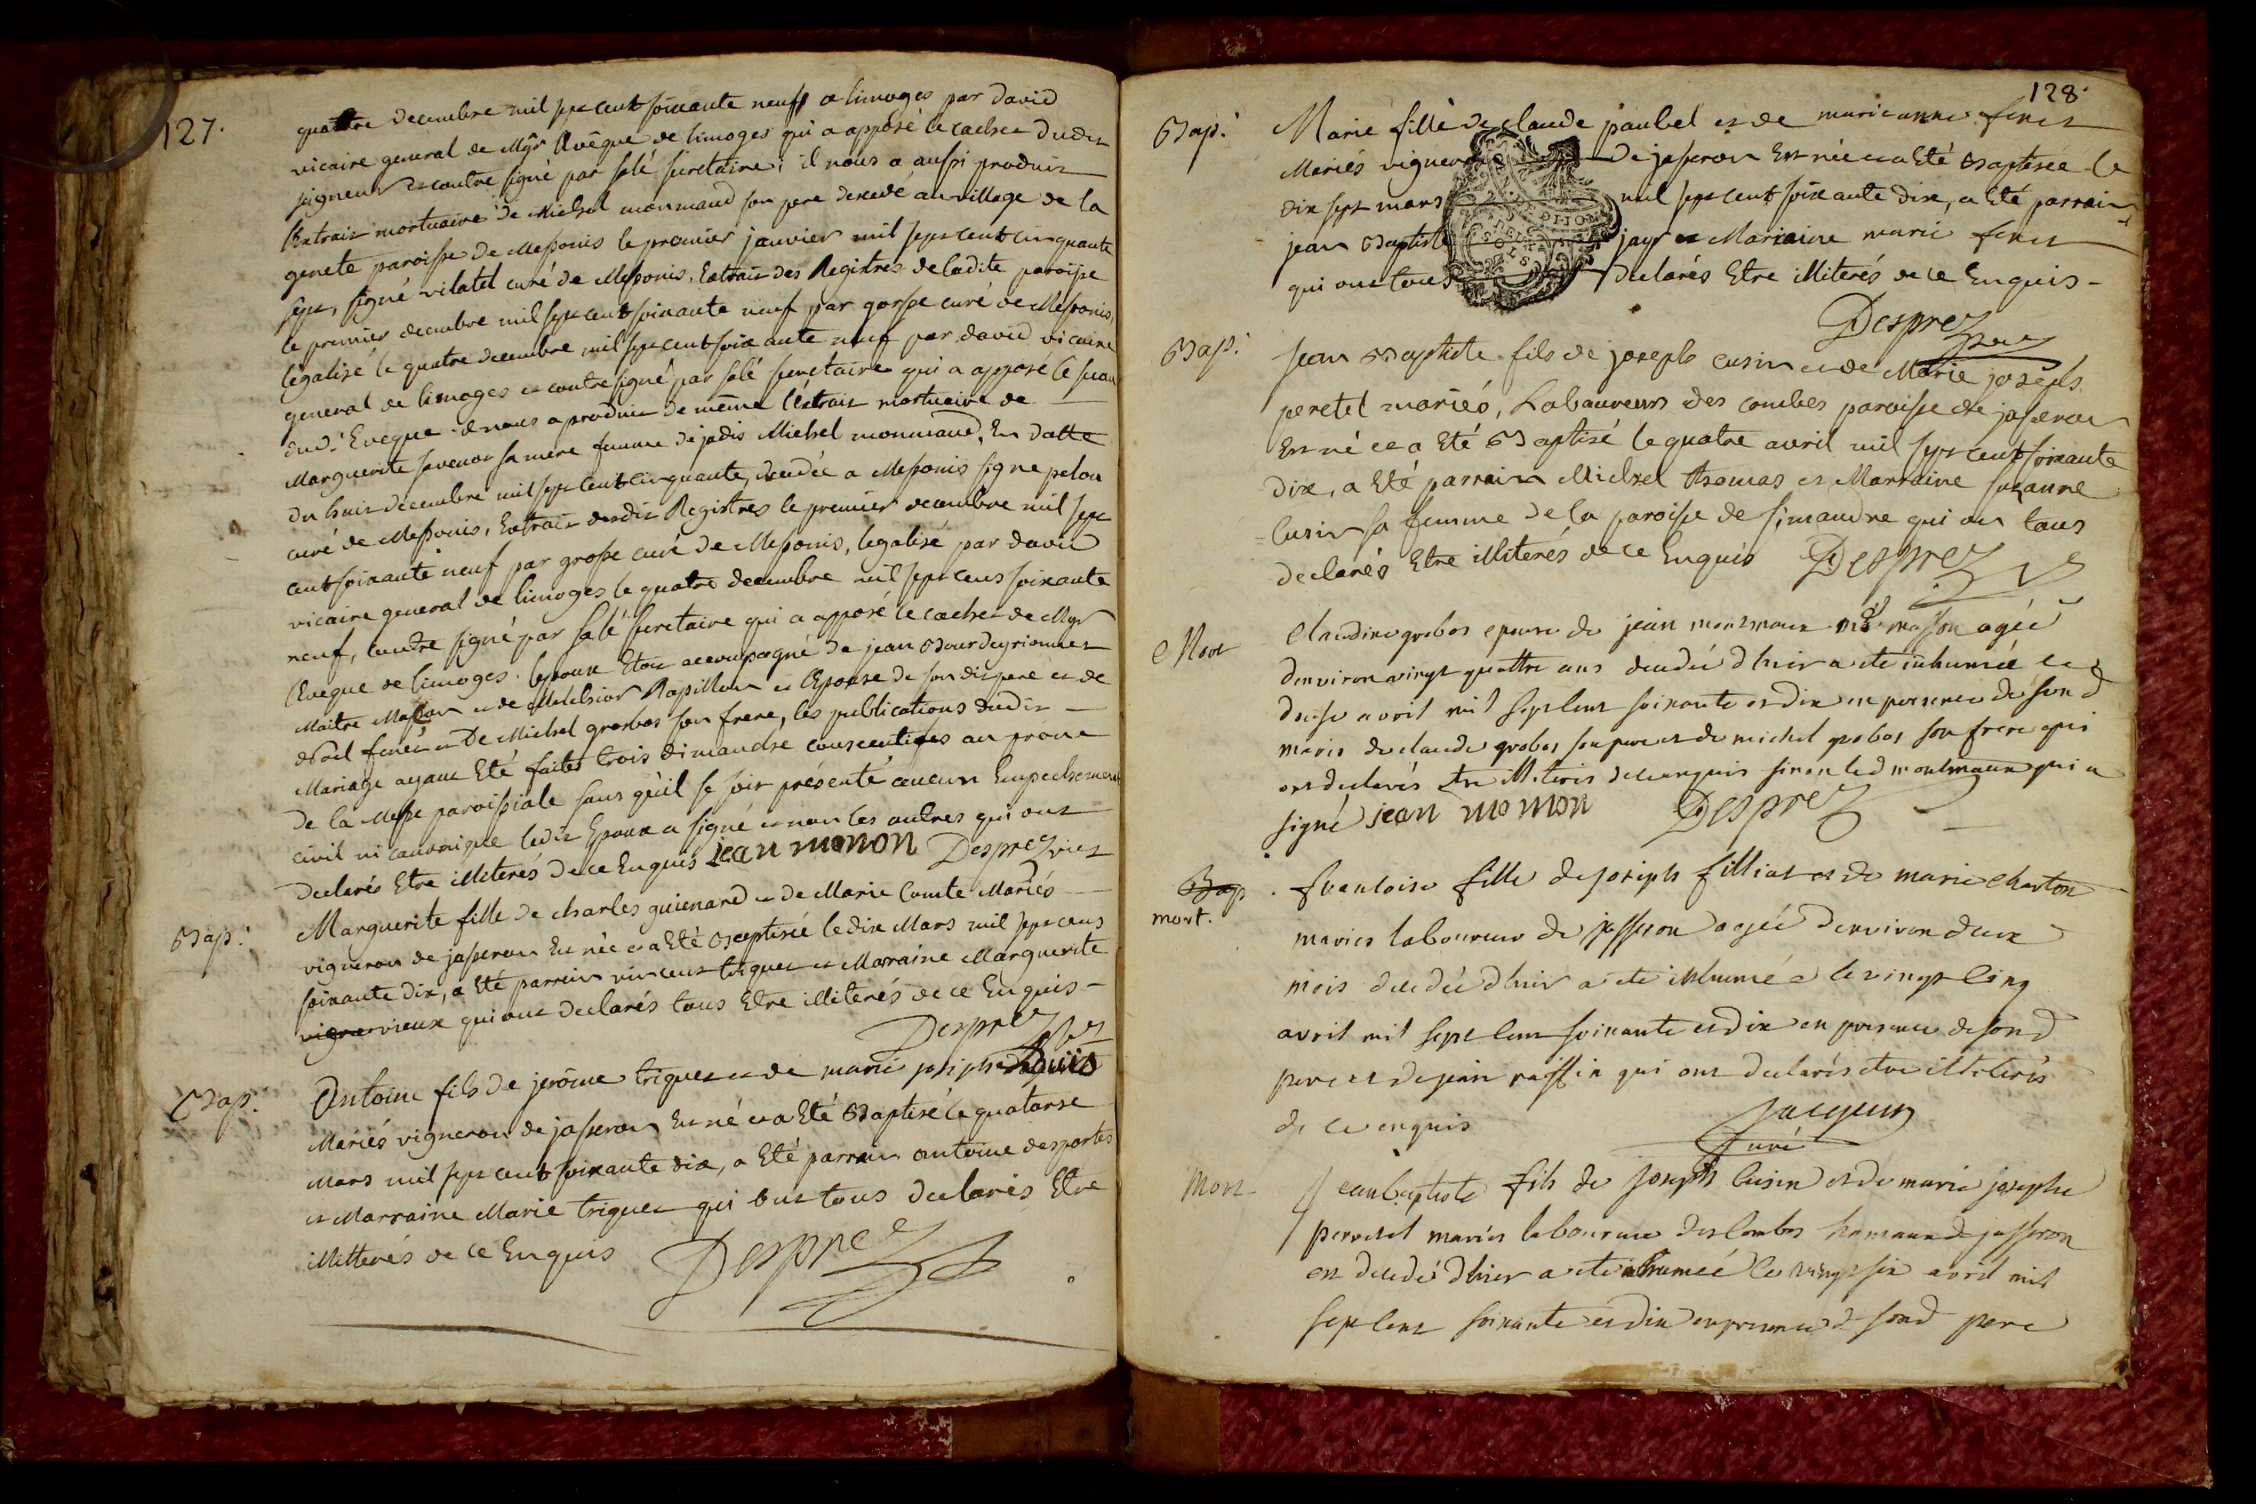 127.
quattre decembre mil sept cent soixante neuf a limoges par david
vicaire general de Mgr Evêque de limoges qui a apposé le cachet dudit
seigneur et contre signé par salé secretaire; il nous a aussi produit
l'Extrait mortuaire de Michel monmaud son pere decedé au village de la
genete paroisse de Messonis le premier janvier mil sept cent cinquante
sept, signé vilatel curé de Messonis, Extrait des Registres de ladite paroisse
le premier decembre mil sept cent soixante neuf par gorsse curé de Messonis,
légalisé le quatre decembre mil sept cent soixante neuf par david vicaire
general de limoges et contresigné par salé secretaire qui a apposé le sceau
dud. Eveque. il nous a produit de même l'extrait mortuaire de
Marguerite sa mere femme de jadis Michel monmaud, En datte
du huit decembre mil sept cent cinquante, decedée a Messonis signé pelou
curé de Messonis, Extrait desdits Registres le premier decembre mil sept
cent soixante neuf par grosse curé de Messonis, legalisé par david
vicaire general de limoges le quatre decembre mil sept cens soixante
neuf, contre signé par salé secretaire qui a apposé le cachet de Mgr
l'Eveque de limoges. l'epoux etoit accompagné de jean Bourdeyrionnet
Maitre Masson et de Melchior Rapillon et l'Epouse de son dit pere et de
noel feret et De Michel grobos son frere, les publications dudit
Mariage ayant Eté faites trois dimanche consecutifes au prone
de la Messe paroissiale sans qu'il se soit présenté aucun Empechement
civil ni canonique ledit Epoux a signé et non les autres qui ont
declarés Etre illiterés de ce Enquis jean monon Desprez vict
Bap: Marguerite fille de charles guienard et de Marie Comte Mariés
vigneron de jasseron Est née et a Eté Baptisée le dix Mars mil sept cens
soixante dix, a Eté parrain vincent triquet et Marraine Marguerite
vieux qui ont declarés tous Etre illiterés de ce Enquis -
Desprez
Bap: Antoine fils de jerôme triquet et de marie josephe
Mariés vigneron de jasseron Est né et a Eté Baptisé le quatorse
Mars mil sept cent soixante dix, a Eté parrain antoine desportes
et Marraine Marie triquet qui ont tous declarés Etre
illitterés de ce Enquis Desprez
128.
Bap: Marie fille de claude paubel et de marieanne feret
Mariés vigneron de jasseron Est née et a Eté Baptisée le
dix sept mars mil sept cent soixante dix, a Eté parrain
jean Baptiste jayr et Mariaine marie feret
qui ont tous declarés Etre illiterés de ce Enquis -
Desprez
Bap: Jean Baptiste fils de joseph cusin et de Marie joseph
peretel mariés, Laboureurs des combes paroisse de jasseron
Est né et a Eté Baptisé le quatre avril mil sept cent soixante
dix, a Eté parrain Michel thomas et Marraine suzanne
Cusin sa femme de la paroisse de simandre qui on tous
declarés Etre illiterés de ce Enquis Desprez
Mort Claudine grobos epouse de jean montmaux masson agée
denviron vingt quattre ans decedée d'hier a ete inhumée le
douse avril mil sept cent soixante et dix en presence de son d
maris de claude grobos son pere et de michel grobos son frere qui
ont declarés etre illiteris de ce enquis sinon led montmaux qui a
signé jean momon Desprez
Bap
mort. francoise fille de joseph filliat et de marie charton
maries laboureur de jasseron agée denviron deux
mois decedée d'hier a ete inhumée le vingt cinq
avril mil sept cent soixante et dix en presence de son d
pere et de jean raffin qui ont declarés etre illiteris
de ce enquis Jacquin
Curé
Mort Jean baptiste fils de joseph Cusin et de marie josephe
perretel mariés laboureur des Combes hameau de jasseron
est decedé d'hier a ete inhumeé le vingt six avril mil
sept cent soixante et dix en presence de son d pere